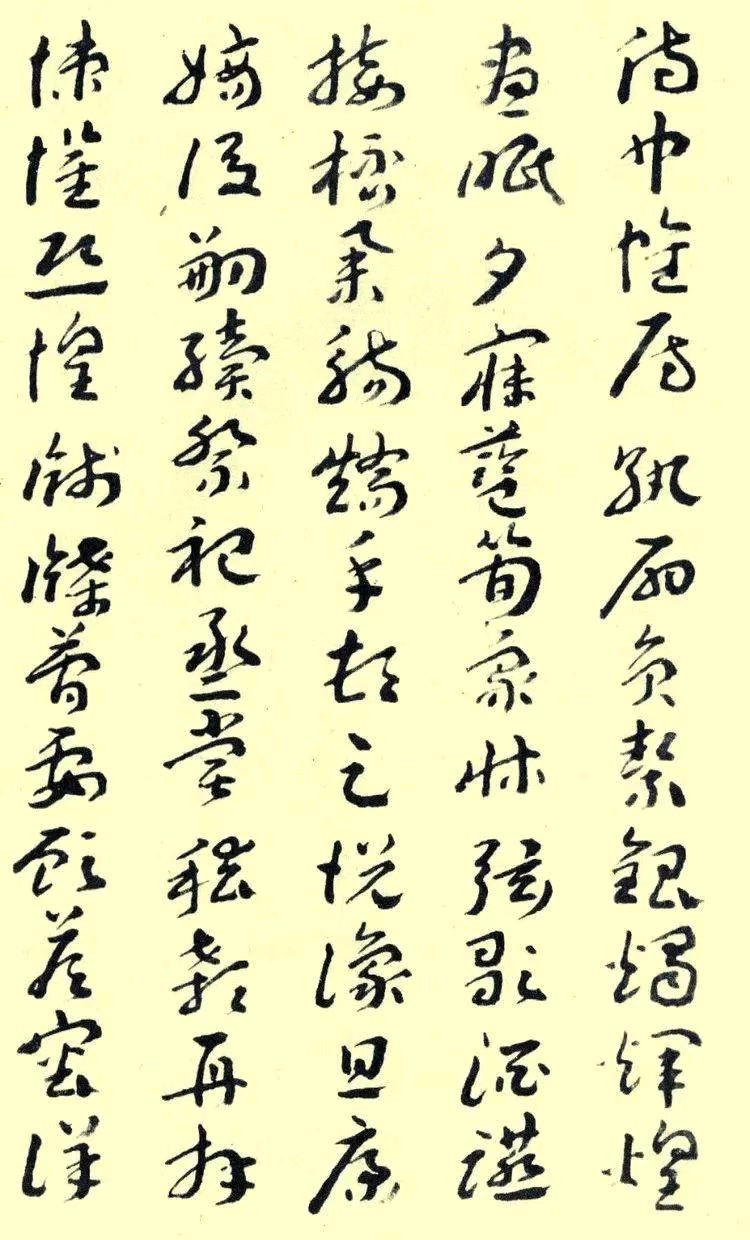 侍巾帷房紈扇員絜銀燭煒煌
晝眠夕寐藍筍象牀弦歌酒讌
接杯舉觴矯手頓足悅豫且康
嫡後嗣續祭祀烝嘗稽顙再拜
悚懼恐惶牋牒簡要顧答審詳